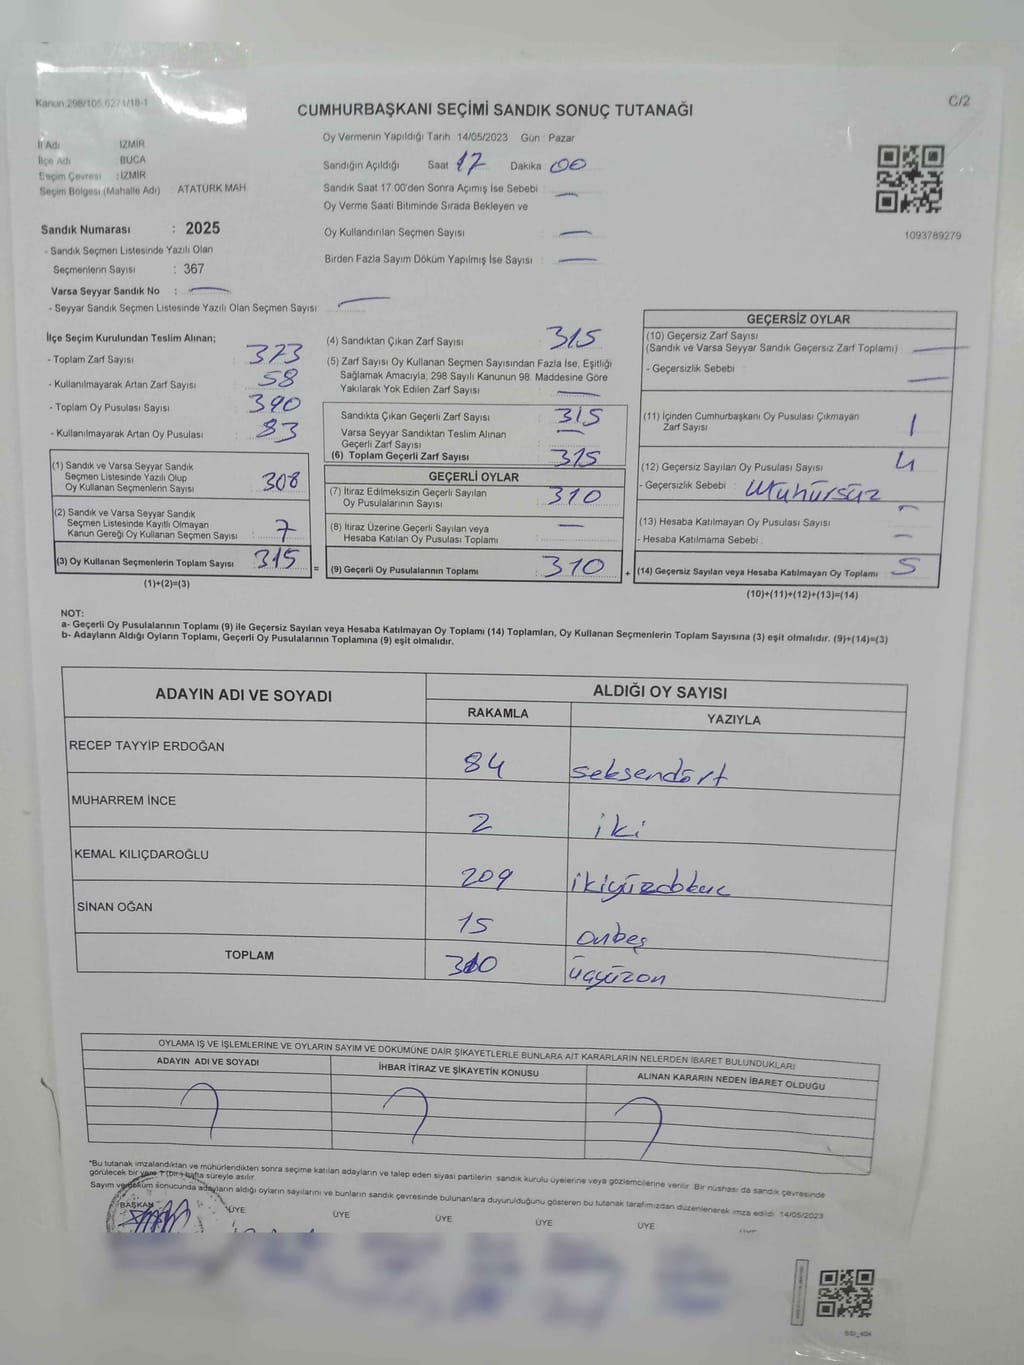 Kanun 298/105,6271/18-1
C/2
CUMHURBAŞKANI SEÇİMİ SANDIK SONUÇ TUTANAĞI
Oy Vermenin Yapıldığı Tarih : 14/05/2023 Gün : Pazar
İl Adı : İZMİR
İlçe Adı : BUCA
Seçim Çevresi : İZMİR
Seçim Bölgesi (Mahalle Adı) : ATATÜRK MAH
Sandığın Açıldığı Saat 17 Dakika 00
Sandık Saat 17.00'den Sonra Açımış İse Sebebi : —
Oy Verme Saati Bitiminde Sırada Bekleyen ve
Oy Kullandırılan Seçmen Sayısı : —
Birden Fazla Sayım Döküm Yapılmış İse Sayısı : —
1093789279
Sandık Numarası : 2025
- Sandık Seçmen Listesinde Yazılı Olan
Seçmenlerin Sayısı : 367
Varsa Seyyar Sandık No : —
- Seyyar Sandık Seçmen Listesinde Yazılı Olan Seçmen Sayısı: —
İlçe Seçim Kurulundan Teslim Alınan;
- Toplam Zarf Sayısı : 373
- Kullanılmayarak Artan Zarf Sayısı : 58
- Toplam Oy Pusulası Sayısı : 390
- Kullanılmayarak Artan Oy Pusulası : 83
(1) Sandık ve Varsa Seyyar Sandık
Seçmen Listesinde Yazılı Olup
Oy Kullanan Seçmenlerin Sayısı : 308
(2) Sandık ve Varsa Seyyar Sandık
Seçmen Listesinde Kayıtlı Olmayan
Kanun Gereği Oy Kullanan Seçmen Sayısı : 7
(3) Oy Kullanan Seçmenlerin Toplam Sayısı : 315
(1)+(2)=(3)
(4) Sandıktan Çıkan Zarf Sayısı : 315
(5) Zarf Sayısı Oy Kullanan Seçmen Sayısından Fazla İse, Eşitliği
Sağlamak Amacıyla, 298 Sayılı Kanunun 98. Maddesine Göre
Yakılarak Yok Edilen Zarf Sayısı : —
Sandıkta Çıkan Geçerli Zarf Sayısı : 315
Varsa Seyyar Sandıktan Teslim Alınan
Geçerli Zarf Sayısı : —
(6) Toplam Geçerli Zarf Sayısı : 315
GEÇERLİ OYLAR
(7) İtiraz Edilmeksizin Geçerli Sayılan
Oy Pusulalarının Sayısı : 310
(8) İtiraz Üzerine Geçerli Sayılan veya
Hesaba Katılan Oy Pusulası Toplamı : —
= (9) Geçerli Oy Pusulalarının Toplamı : 310
GEÇERSİZ OYLAR
(10) Geçersiz Zarf Sayısı
(Sandık ve Varsa Seyyar Sandık Geçersiz Zarf Toplamı) : —
- Geçersizlik Sebebi : —
(11) İçinden Cumhurbaşkanı Oy Pusulası Çıkmayan
Zarf Sayısı : 1
(12) Geçersiz Sayılan Oy Pusulası Sayısı : 4
- Geçersizlik Sebebi : Mühürsüz
(13) Hesaba Katılmayan Oy Pusulası Sayısı : —
- Hesaba Katılmama Sebebi : —
+ (14) Geçersiz Sayılan veya Hesaba Katılmayan Oy Toplamı : 5
(10)+(11)+(12)+(13)=(14)
NOT:
a- Geçerli Oy Pusulalarının Toplamı (9) ile Geçersiz Sayılan veya Hesaba Katılmayan Oy Toplamı (14) Toplamları, Oy Kullanan Seçmenlerin Toplam Sayısına (3) eşit olmalıdır. (9)+(14)=(3)
b- Adayların Aldığı Oyların Toplamı, Geçerli Oy Pusulalarının Toplamına (9) eşit olmalıdır.
ADAYIN ADI VE SOYADI ALDIĞI OY SAYISI
RAKAMLA YAZIYLA
RECEP TAYYİP ERDOĞAN 84 seksendört
MUHARREM İNCE 2 iki
KEMAL KILIÇDAROĞLU 209 ikiyüzdokuz
SİNAN OĞAN 15 onbeş
TOPLAM 310 üçyüzon
OYLAMA İŞ VE İŞLEMLERİNE VE OYLARIN SAYIM VE DÖKÜMÜNE DAİR ŞİKAYETLERLE BUNLARA AİT KARARLARIN NELERDEN İBARET BULUNDUKLARI
ADAYIN ADI VE SOYADI İHBAR İTİRAZ VE ŞİKAYETİN KONUSU ALINAN KARARIN NEDEN İBARET OLDUĞU
*Bu tutanak imzalandıktan ve mühürlendikten sonra seçime katılan adayların ve talep eden siyasi partilerin sandık kurulu üyelerine veya gözlemcilerine verilir. Bir nüshası da sandık çevresinde
görülecek bir yere 1 (bir) hafta süreyle asılır.
Sayım ve döküm sonucunda adayların aldığı oyların sayılarını ve bunların sandık çevresinde bulunanlara duyurulduğunu gösteren bu tutanak tarafımızdan düzenlenerek imza edildi. 14/05/2023
BAŞKAN ÜYE ÜYE ÜYE ÜYE ÜYE